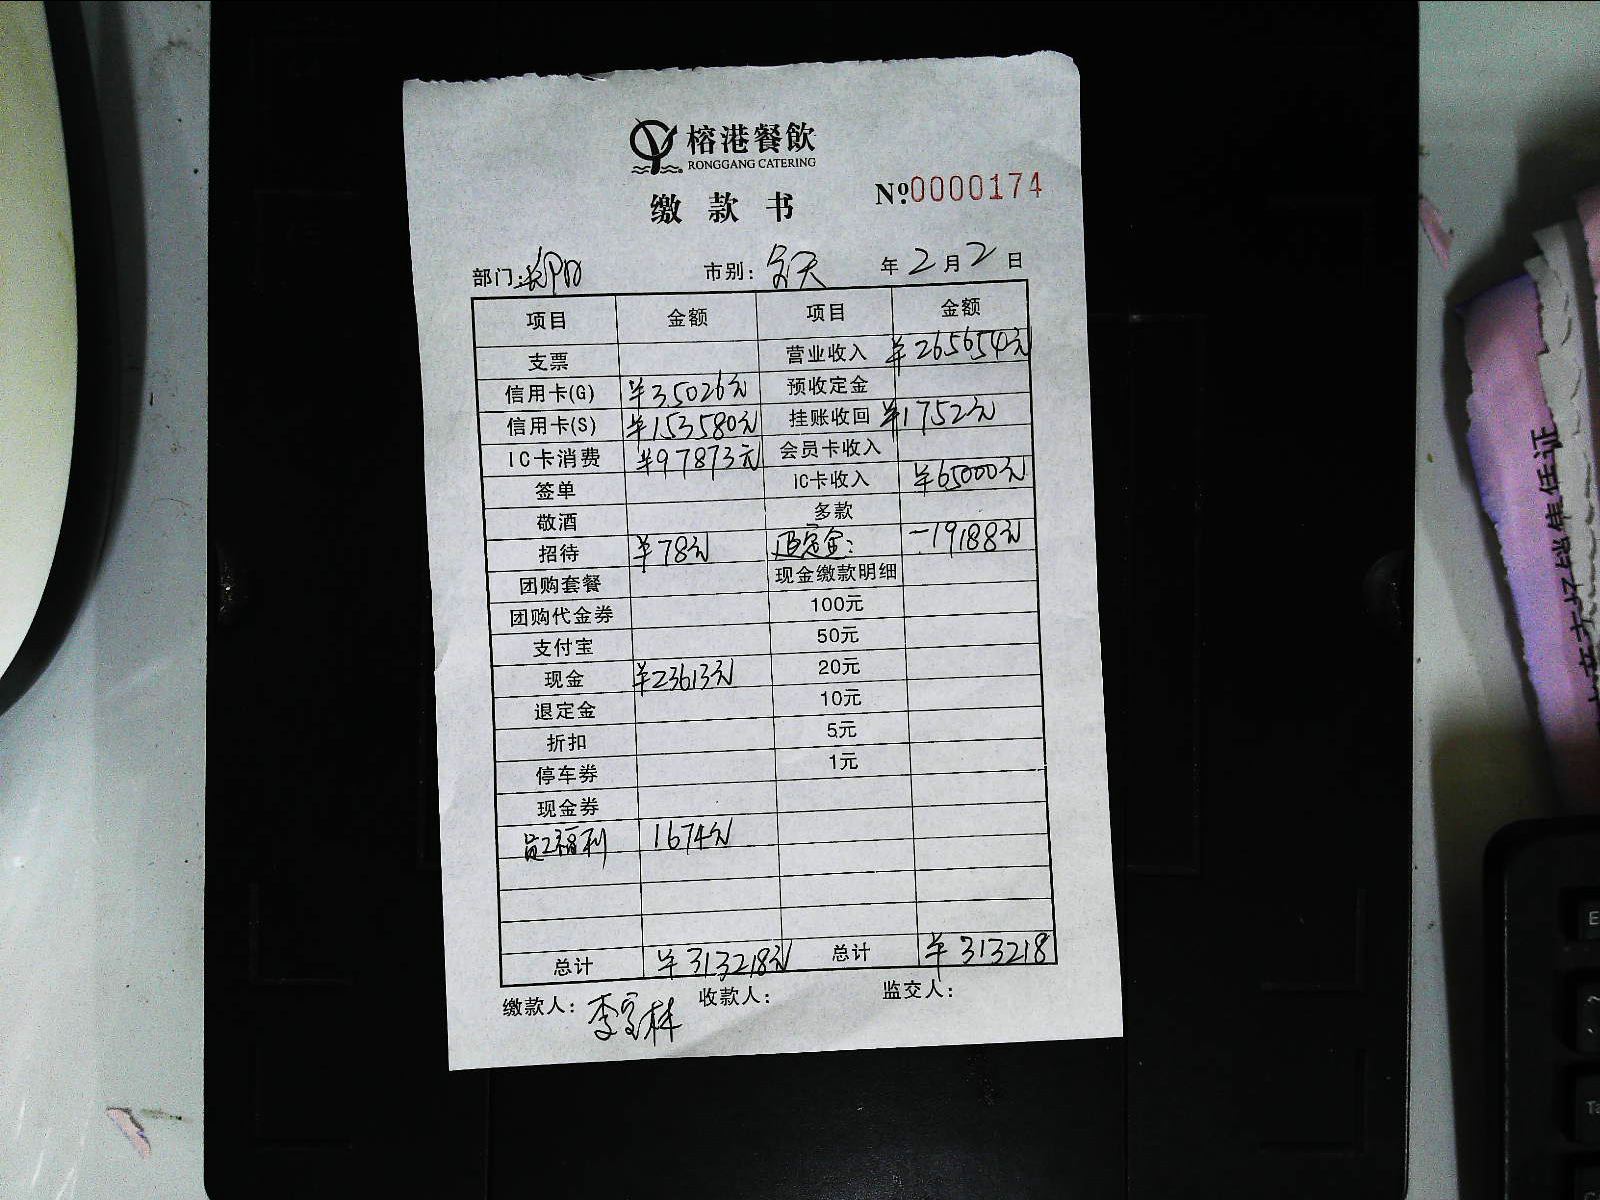 榕港餐飲
RONGGANG CATERING
缴款书
№0000174
部门: 市别: 全天 年 2 月 2 日
项目 金额 项目 金额
支票 营业收入 ¥265654元
信用卡(G) ¥35026元 预收定金
信用卡(S) ¥153580元 挂账收回 ¥1752元
IC卡消费 ¥97873元 会员卡收入
签单 IC卡收入 ¥65000元
敬酒 多款
招待 ¥78元 退定金: -19188元
团购套餐 现金缴款明细
团购代金券 100元
支付宝 50元
现金 ¥23613元 20元
退定金 10元
折扣 5元
停车券 1元
现金券
员工福利 1674元
总计 ¥313218元 总计 ¥313218
缴款人: 李宝林 收款人: 监交人: